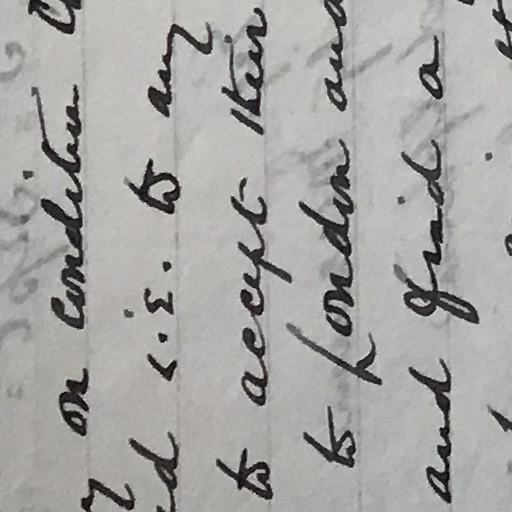 on condition
to any
to accept their
to London and
and find a